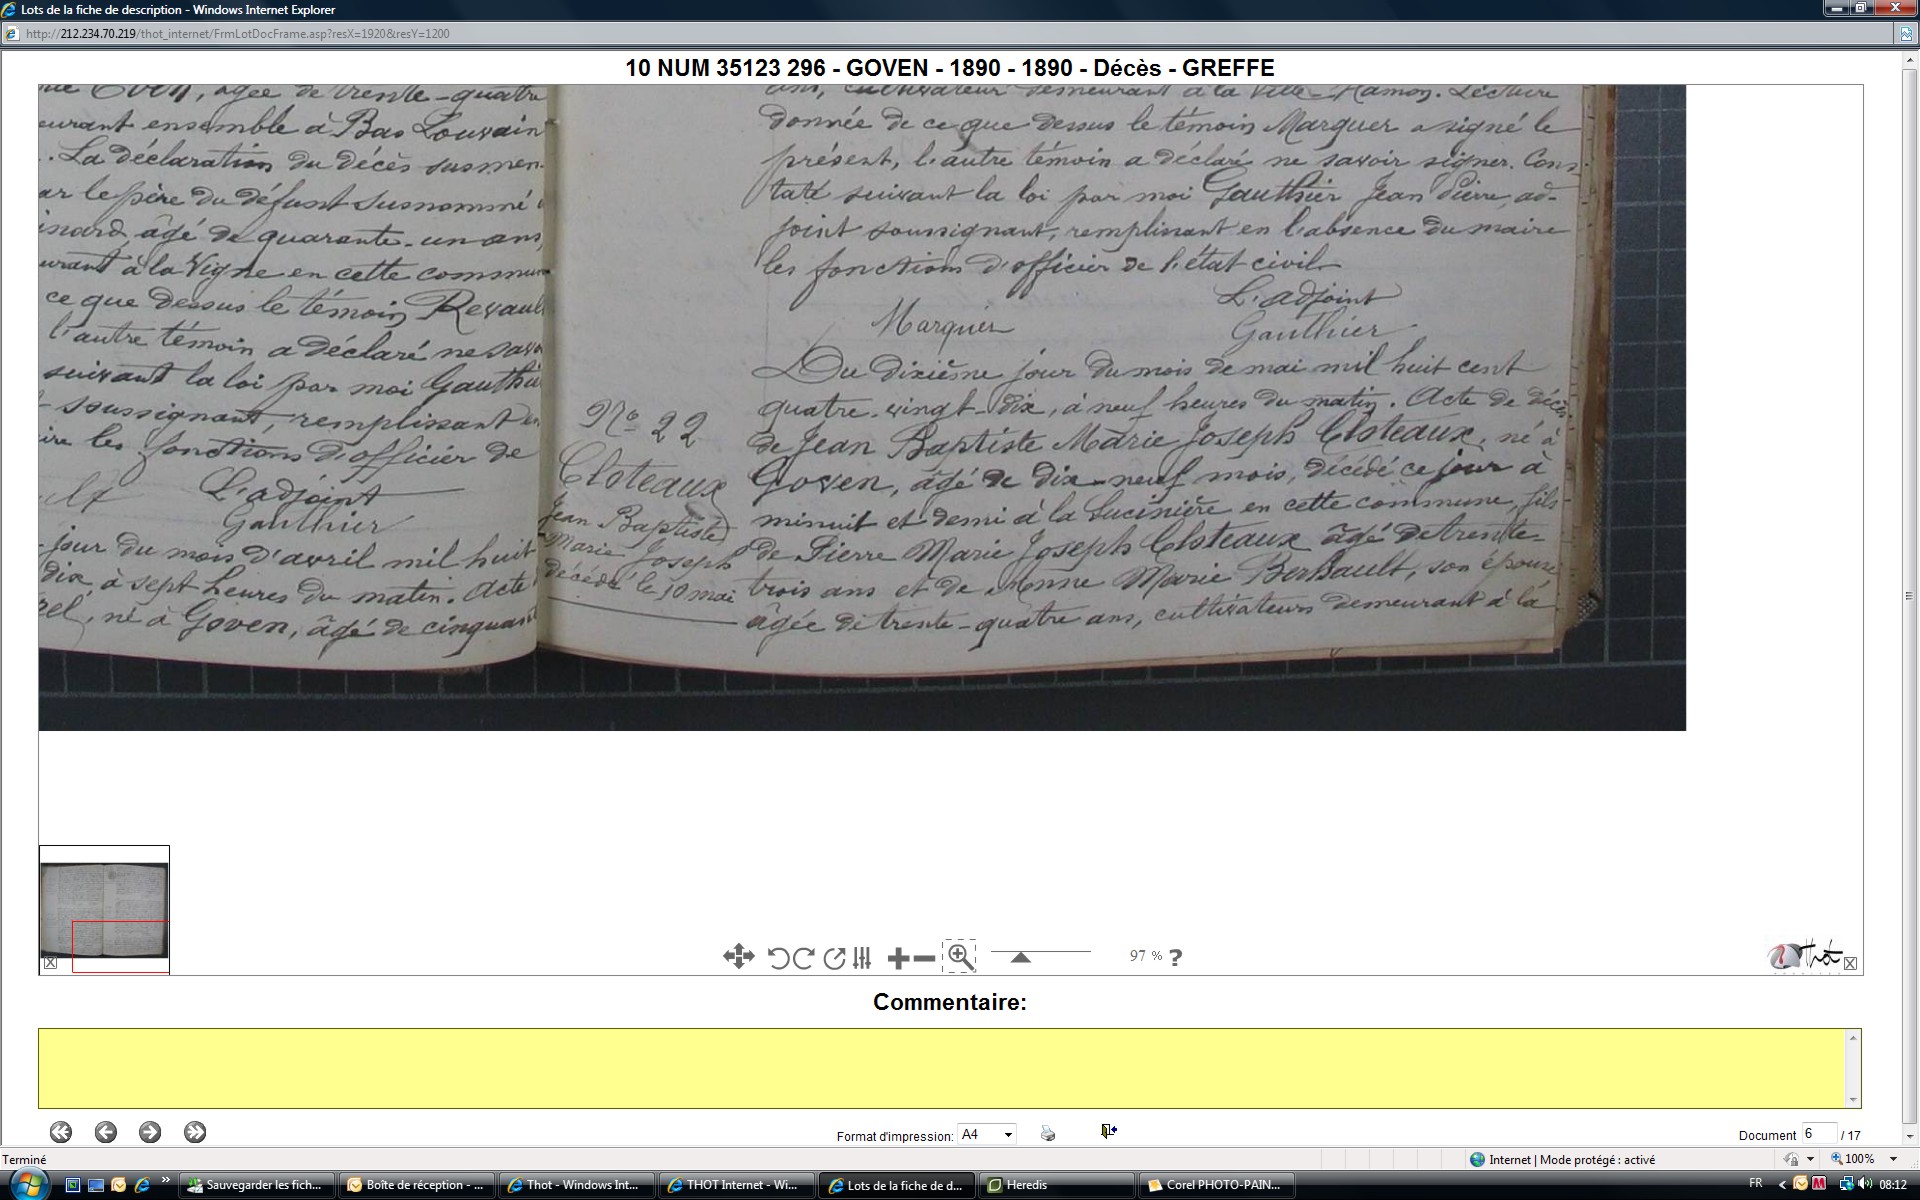 Lots de la fiche de description - Windows Internet Explorer
http://212.234.70.219/thot_internet/FrmLotDocFrame.asp?resX=1920&resY=1200
10 NUM 35123 296 - GOVEN - 1890 - 1890 - Décès - GREFFE
Even, âgée de trente-quatre
eurant ensemble à Bas Louvain
. La déclaration du décès susmen-
ar le père du défunt susnommé
inard, âgé de quarante-un ans,
eurant à la Vigne en cette commune
ce que dessus le témoin Revault
l'autre témoin a déclaré ne savoi
suivant la loi par moi Gauthie
soussignant, remplissant en
ire les fonctions d'officier de
L'adjoint
Gauthier
jour du mois d'avril mil huit
dix, à sept heures du matin. Acte
pel, né à Goven, âgé de cinquant
ans, cultivateur demeurant à la Ville-Hamon. Lecture
donnée de ce que dessus le témoin Marquer a signé le
présent, l'autre témoin a déclaré ne savoir signer. Cons-
taté suivant la loi par moi Gauthier Jean Pierre, ad-
joint soussignant, remplissant en l'absence du maire
les fonctions d'officier de l'état civil
L'adjoint
Marquer Gauthier
No 22
Clsteaux
Jean Baptiste
Marie Joseph
décédé le 10 mai
Du dixième jour du mois de mai mil huit cent
quatre-vingt-dix, à neuf heures du matin. Acte de décès
de Jean Baptiste Marie Joseph Clsteaux, né à
Goven, âgé de dix-neuf mois, décédé ce jour à
minuit et demi à la Lucinière en cette commune, fils
de Pierre Marie Joseph Clsteaux âgé de trente-
trois ans et de Anne Marie Berhault, son épouse
âgée de trente-quatre ans, cultivateurs demeurant à la
97 % ?
Thot
Commentaire:
Format d'impression: A4
Document 6 / 17
Terminé
Internet | Mode protégé : activé
100%
Sauvegarder les fich...
Boîte de réception - ...
Thot - Windows Int...
THOT Internet - Wi...
Lots de la fiche de d...
Heredis
Corel PHOTO-PAIN...
FR
08:12